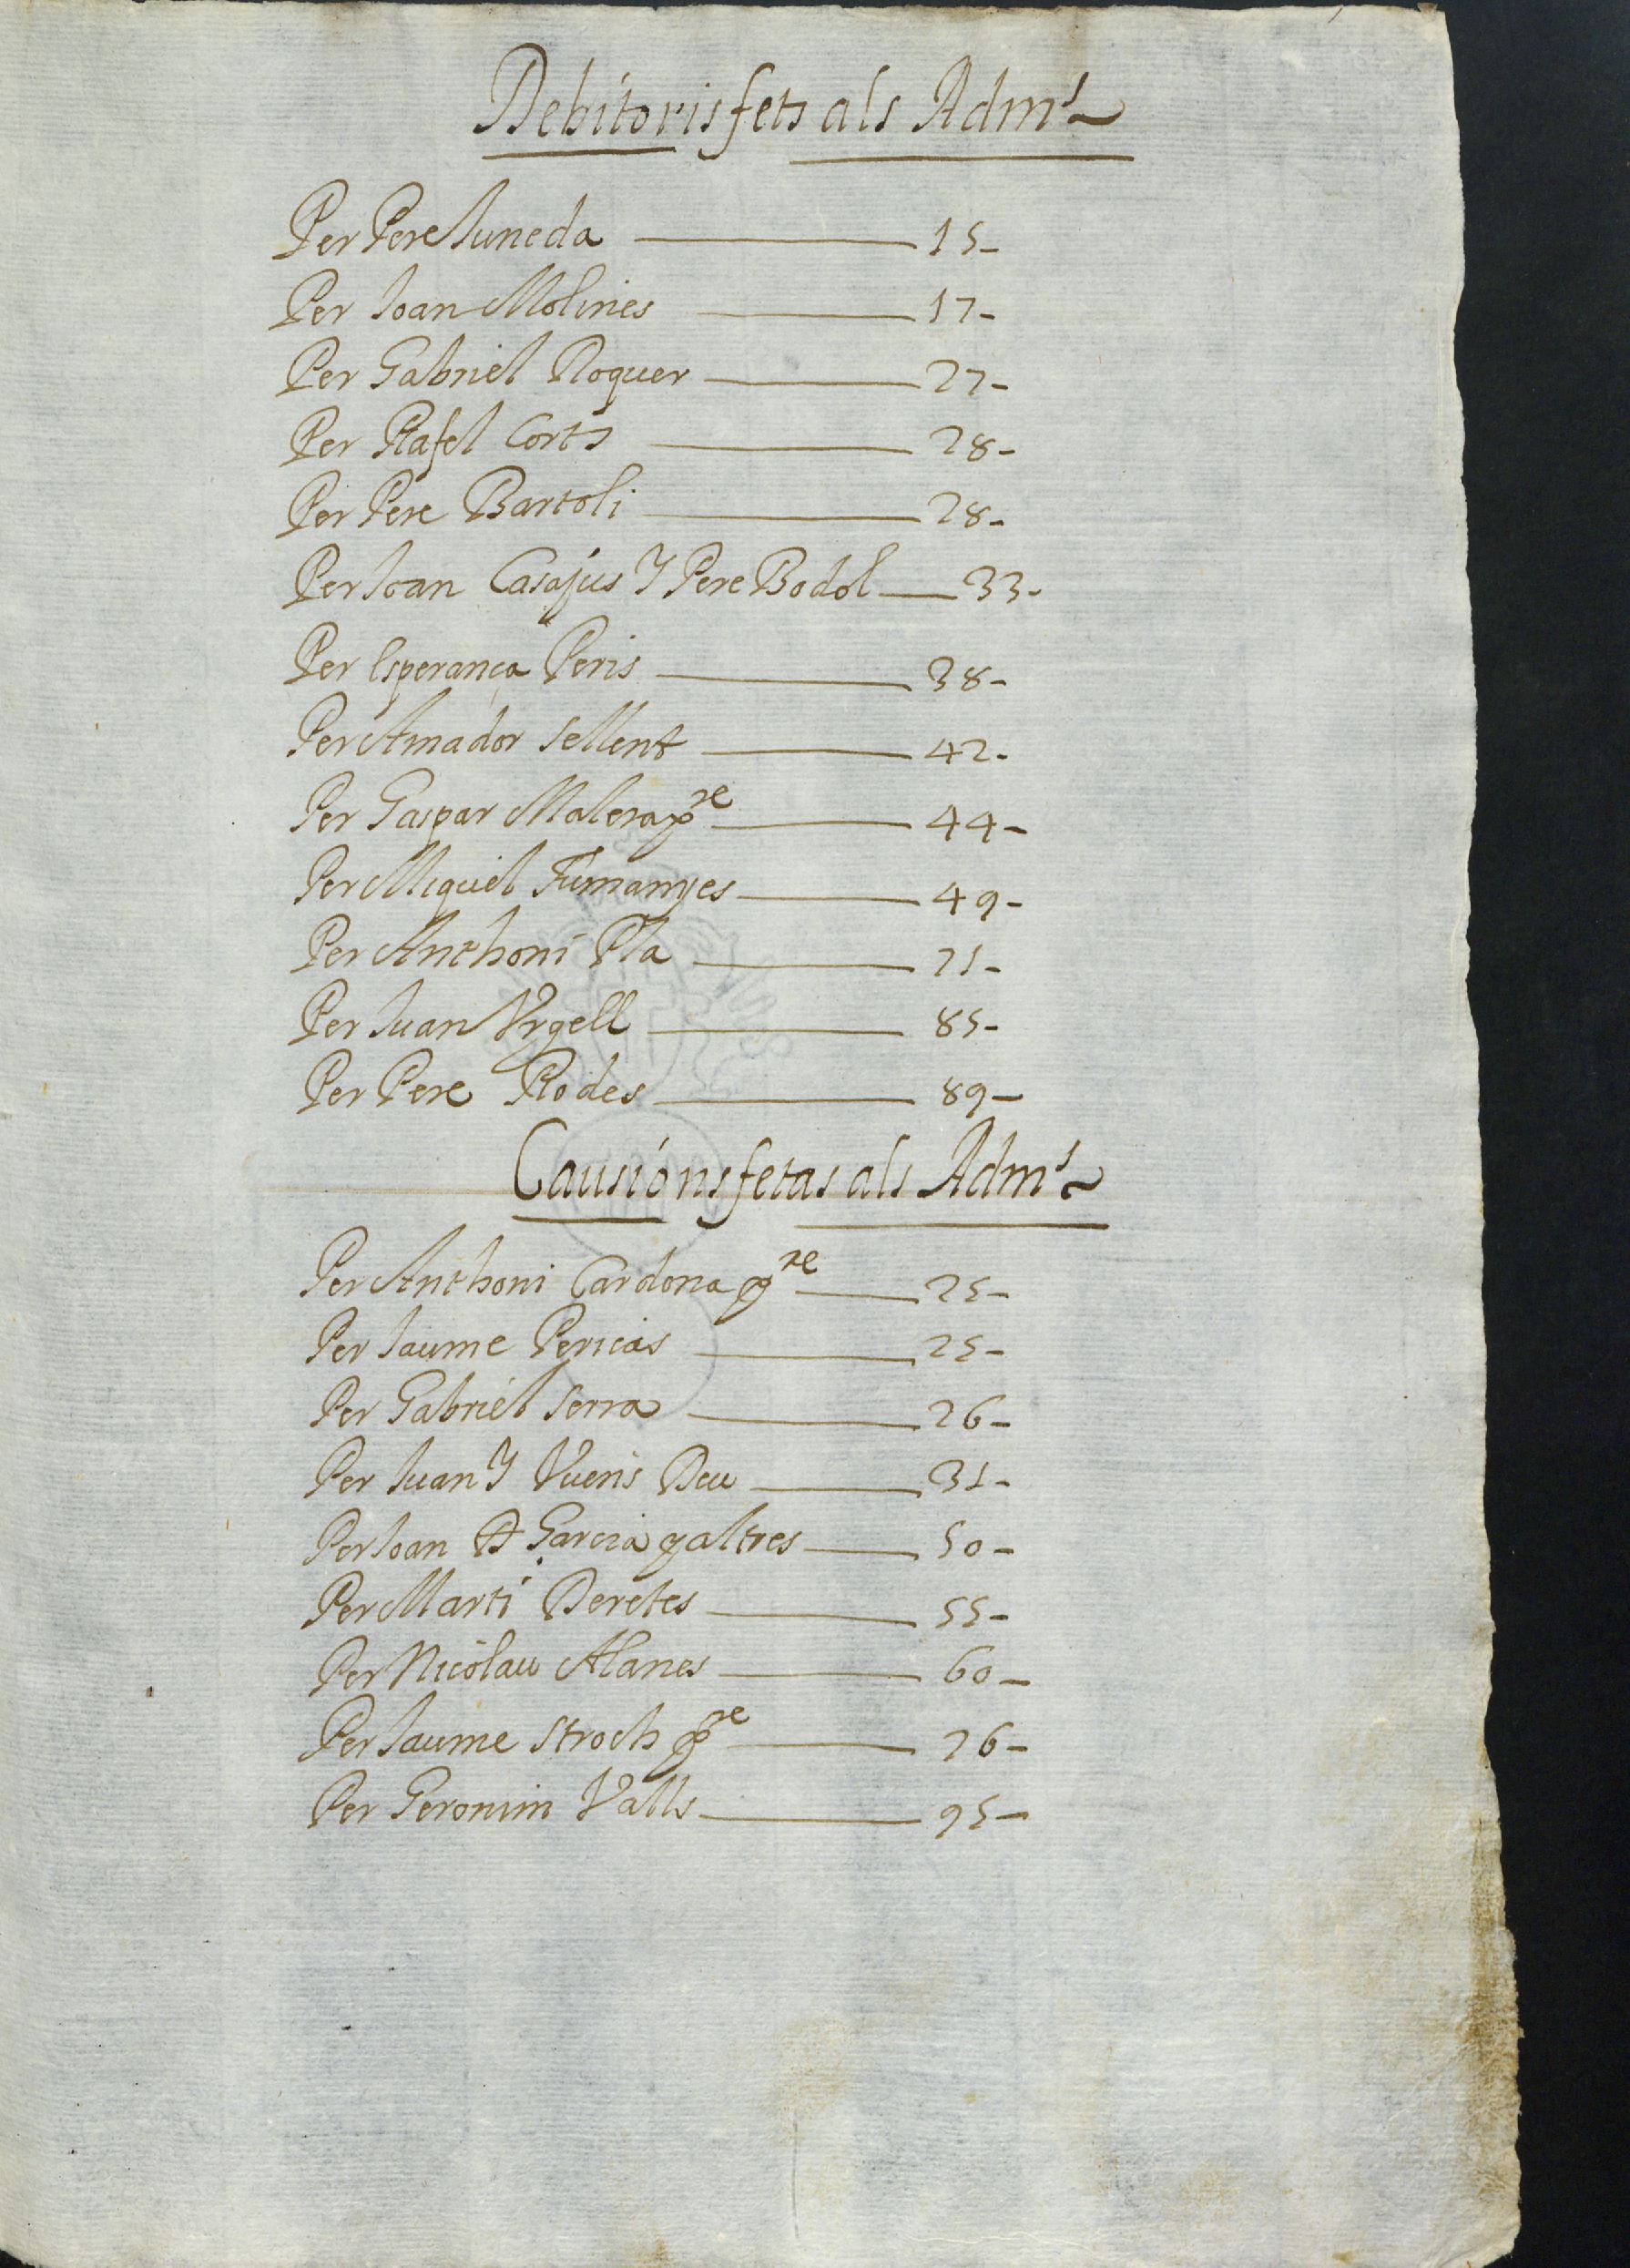 Debitoris fets als Adm^s
Per Pere Juneda 15-
Per Joan Molines 17-
Per Gabriel Roquer 27-
Per Rafel Corts 28-
Per Pere Bartoli 28-
Per Joan Casajus Y Pere Bodol 33-
Per Esperança Peris 38-
Per Amador Sellent 42-
Per Gaspar Malera p^re 44-
Per Miquel Fumanyes 49-
Per Anthoni Pla 71-
Per Juan Vrgell 85-
Per Pere Rodes 89-
Causions fetas als Adm^s
Per Anthoni Cardona p^re 25-
Per Jaume Pericas 25-
Per Gabriel Serra 26-
Per Juan Y Deu 31-
Per Joan Garcia y altres 50-
Per Marti Deretes 55-
Per Nicolau Alanes 60-
Per Jaume Stroch p^re 76-
Per Geronim Valls 95-